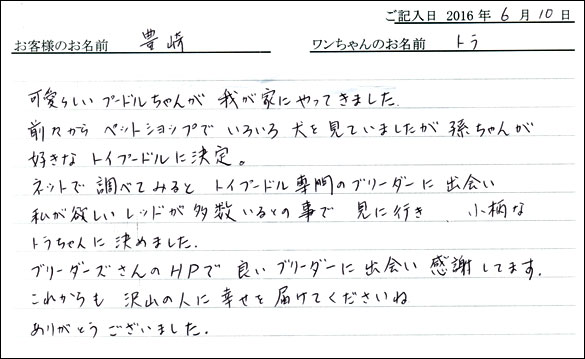 ご記入日 2016 年 6 月 10 日
お客様のお名前 豊崎 ワンちゃんのお名前 トラ
可愛らしいプードルちゃんが 我が家にやってきました.
前々から ペットショップで いろいろ 犬を見ていましたが 孫ちゃんが
好きな トイプードルに決定。
ネットで 調べてみると トイプードル専門のブリーダーに 出会い
私が欲しい レッドが 多数いるとの事で 見に行き 、小柄な
トラちゃんに 決めました.
ブリーダーズさんのHPで 良いブリーダーに 出会い 感謝してます.
これからも 沢山の人に 幸せを届けてくださいね
ありがとうございました.